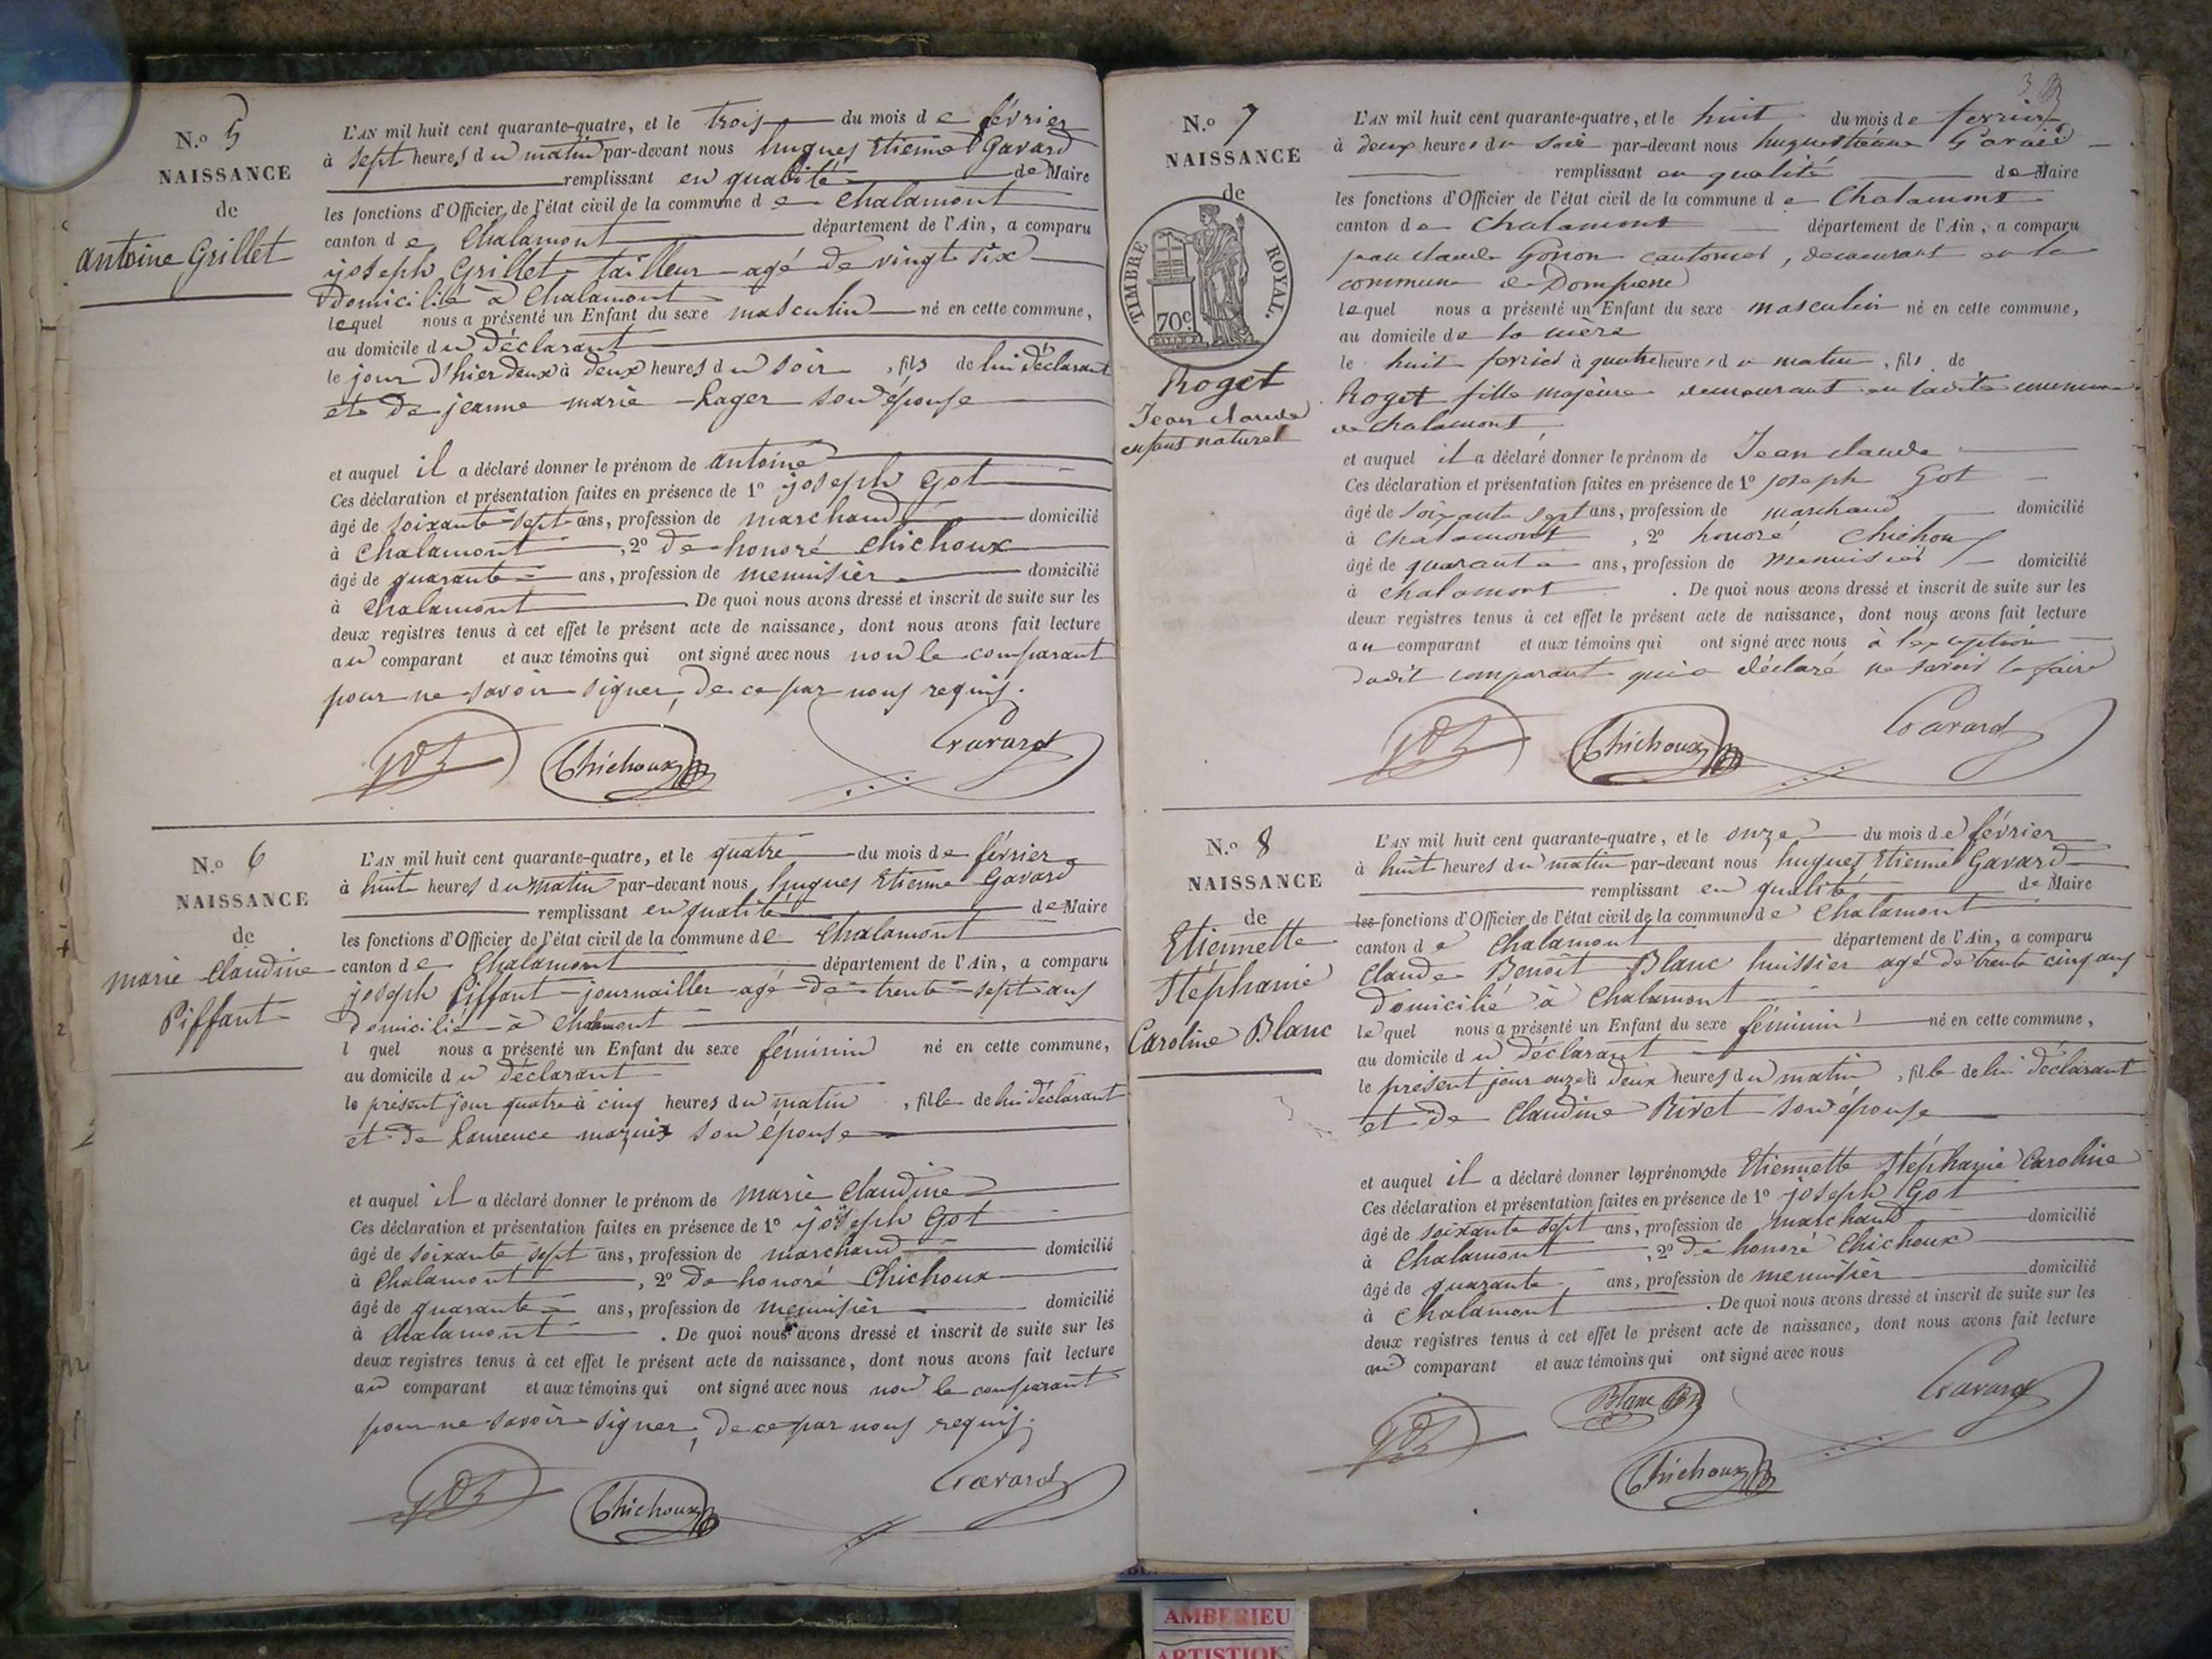 N.º 5
NAISSANCE
de
antoine Grillet
L'AN mil huit cent quarante-quatre, et le trois du mois de février
à sept heures du matin par-devant nous hugues Etienne Gavard
remplissant en qualité de Maire
les fonctions d'Officier de l'état civil de la commune de Chalamont
canton de Chalamont département de l'Ain, a comparu
joseph Grillet tailleur agé de vingt six
Domicilié à Chalamont
lequel nous a présenté un Enfant du sexe masculin né en cette commune,
au domicile du Déclarant
le jour d'hier deux à deux heures du soir, fils de lui Déclarant
et de jeanne marie Lager son épouse
et auquel il a déclaré donner le prénom de antoine
Ces déclaration et présentation faites en présence de 1º joseph Got
âgé de soixante sept ans, profession de marchand domicilié
à Chalamont, 2º De honoré Chichoux
âgé de quarante ans, profession de menuisier domicilié
à Chalamont. De quoi nous avons dressé et inscrit de suite sur les
deux registres tenus à cet effet le présent acte de naissance, dont nous avons fait lecture
au comparant et aux témoins qui ont signé avec nous non le comparant
pour ne savoir signer, de ce par nous requis.
Got Chichoux Gavard
N.º 6
NAISSANCE
de
marie Claudine
Piffant
L'AN mil huit cent quarante-quatre, et le quatre du mois de février
à huit heures du matin par-devant nous hugues Etienne Gavard
remplissant en qualité de Maire
les fonctions d'Officier de l'état civil de la commune de Chalamont
canton de Chalamont département de l'Ain, a comparu
joseph Piffant journailler agé de trente sept ans
Domicilié à Chalamont
l quel nous a présenté un Enfant du sexe féminin né en cette commune,
au domicile du Déclarant
le présent jour quatre à cinq heures du matin, fille de lui Déclarant
et de Laurence mazuis son épouse
et auquel il a déclaré donner le prénom de marie Claudine
Ces déclaration et présentation faites en présence de 1º joseph Got
âgé de soixante sept ans, profession de marchand domicilié
à Chalamont, 2º De honoré Chichoux
âgé de quarante ans, profession de menuisier domicilié
à Chalamont. De quoi nous avons dressé et inscrit de suite sur les
deux registres tenus à cet effet le présent acte de naissance, dont nous avons fait lecture
au comparant et aux témoins qui ont signé avec nous non le comparant
pour ne savoir signer, de ce par nous requis.
Got Chichoux Gavard
N.º 7
NAISSANCE
de
TIMBRE ROYAL.
70c.
Roget
Jean claude
enfant naturel
L'AN mil huit cent quarante-quatre, et le huit du mois de fevrier
à deux heures du soir par-devant nous hugues Etienne Gavard
remplissant en qualité de Maire
les fonctions d'Officier de l'état civil de la commune de Chalamont
canton de Chalamont département de l'Ain, a comparu
jean claude Gonon cantonier, demeurant en la
commune de Dompierre
lequel nous a présenté un Enfant du sexe masculin né en cette commune,
au domicile de la mère
le huit fevrier à quatre heures du matin, fils de
Roget fille majeure demeurant en ladite commune
de chalamont
et auquel il a déclaré donner le prénom de Jean claude
Ces déclaration et présentation faites en présence de 1º joseph Got
âgé de soixante sept ans, profession de marchand domicilié
à Chalamont, 2º honoré Chichoux
âgé de quarante ans, profession de menuisier domicilié
à chalamont. De quoi nous avons dressé et inscrit de suite sur les
deux registres tenus à cet effet le présent acte de naissance, dont nous avons fait lecture
au comparant et aux témoins qui ont signé avec nous à l'exception
dudit comparant qui a déclaré ne savoir le faire
Got Chichoux Gavard
N.º 8
NAISSANCE
de
Etiennette
Stéphanie
Caroline Blanc
L'AN mil huit cent quarante-quatre, et le onze du mois de février
à huit heures du matin par-devant nous hugues Etienne Gavard
remplissant en qualité de Maire
les fonctions d'Officier de l'état civil de la commune de Chalamont
canton de Chalamont département de l'Ain, a comparu
Claude Benoît Blanc huissier agé de trente cinq ans
Domicilié à Chalamont
lequel nous a présenté un Enfant du sexe féminin né en cette commune,
au domicile du Déclarant
le présent jour onze à deux heures du matin, fille de lui Déclarant
et de Claudine Rivet son épouse
et auquel il a déclaré donner les prénoms de Etiennette Stéphanie Caroline
Ces déclaration et présentation faites en présence de 1º joseph Got
âgé de soixante sept ans, profession de marchand domicilié
à Chalamont, 2º De honoré Chichoux
âgé de quarante ans, profession de menuisier domicilié
à Chalamont. De quoi nous avons dressé et inscrit de suite sur les
deux registres tenus à cet effet le présent acte de naissance, dont nous avons fait lecture
au comparant et aux témoins qui ont signé avec nous
Got Blanc Gavard
Chichoux
AMBERIEU